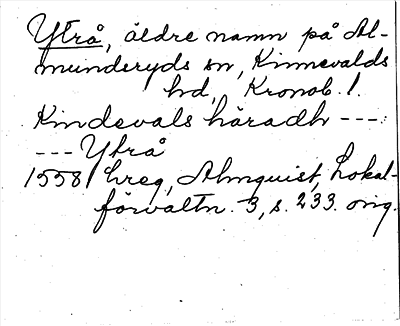 Ytrå, äldre namn på Al-
munderyds sn, Kinnevalds
hd, Kronob. l.
Kindevals häradh ---
--- Ytrå
1558 hreg, Almquist, Lokal-
förvaltn. 3, s. 233. orig.